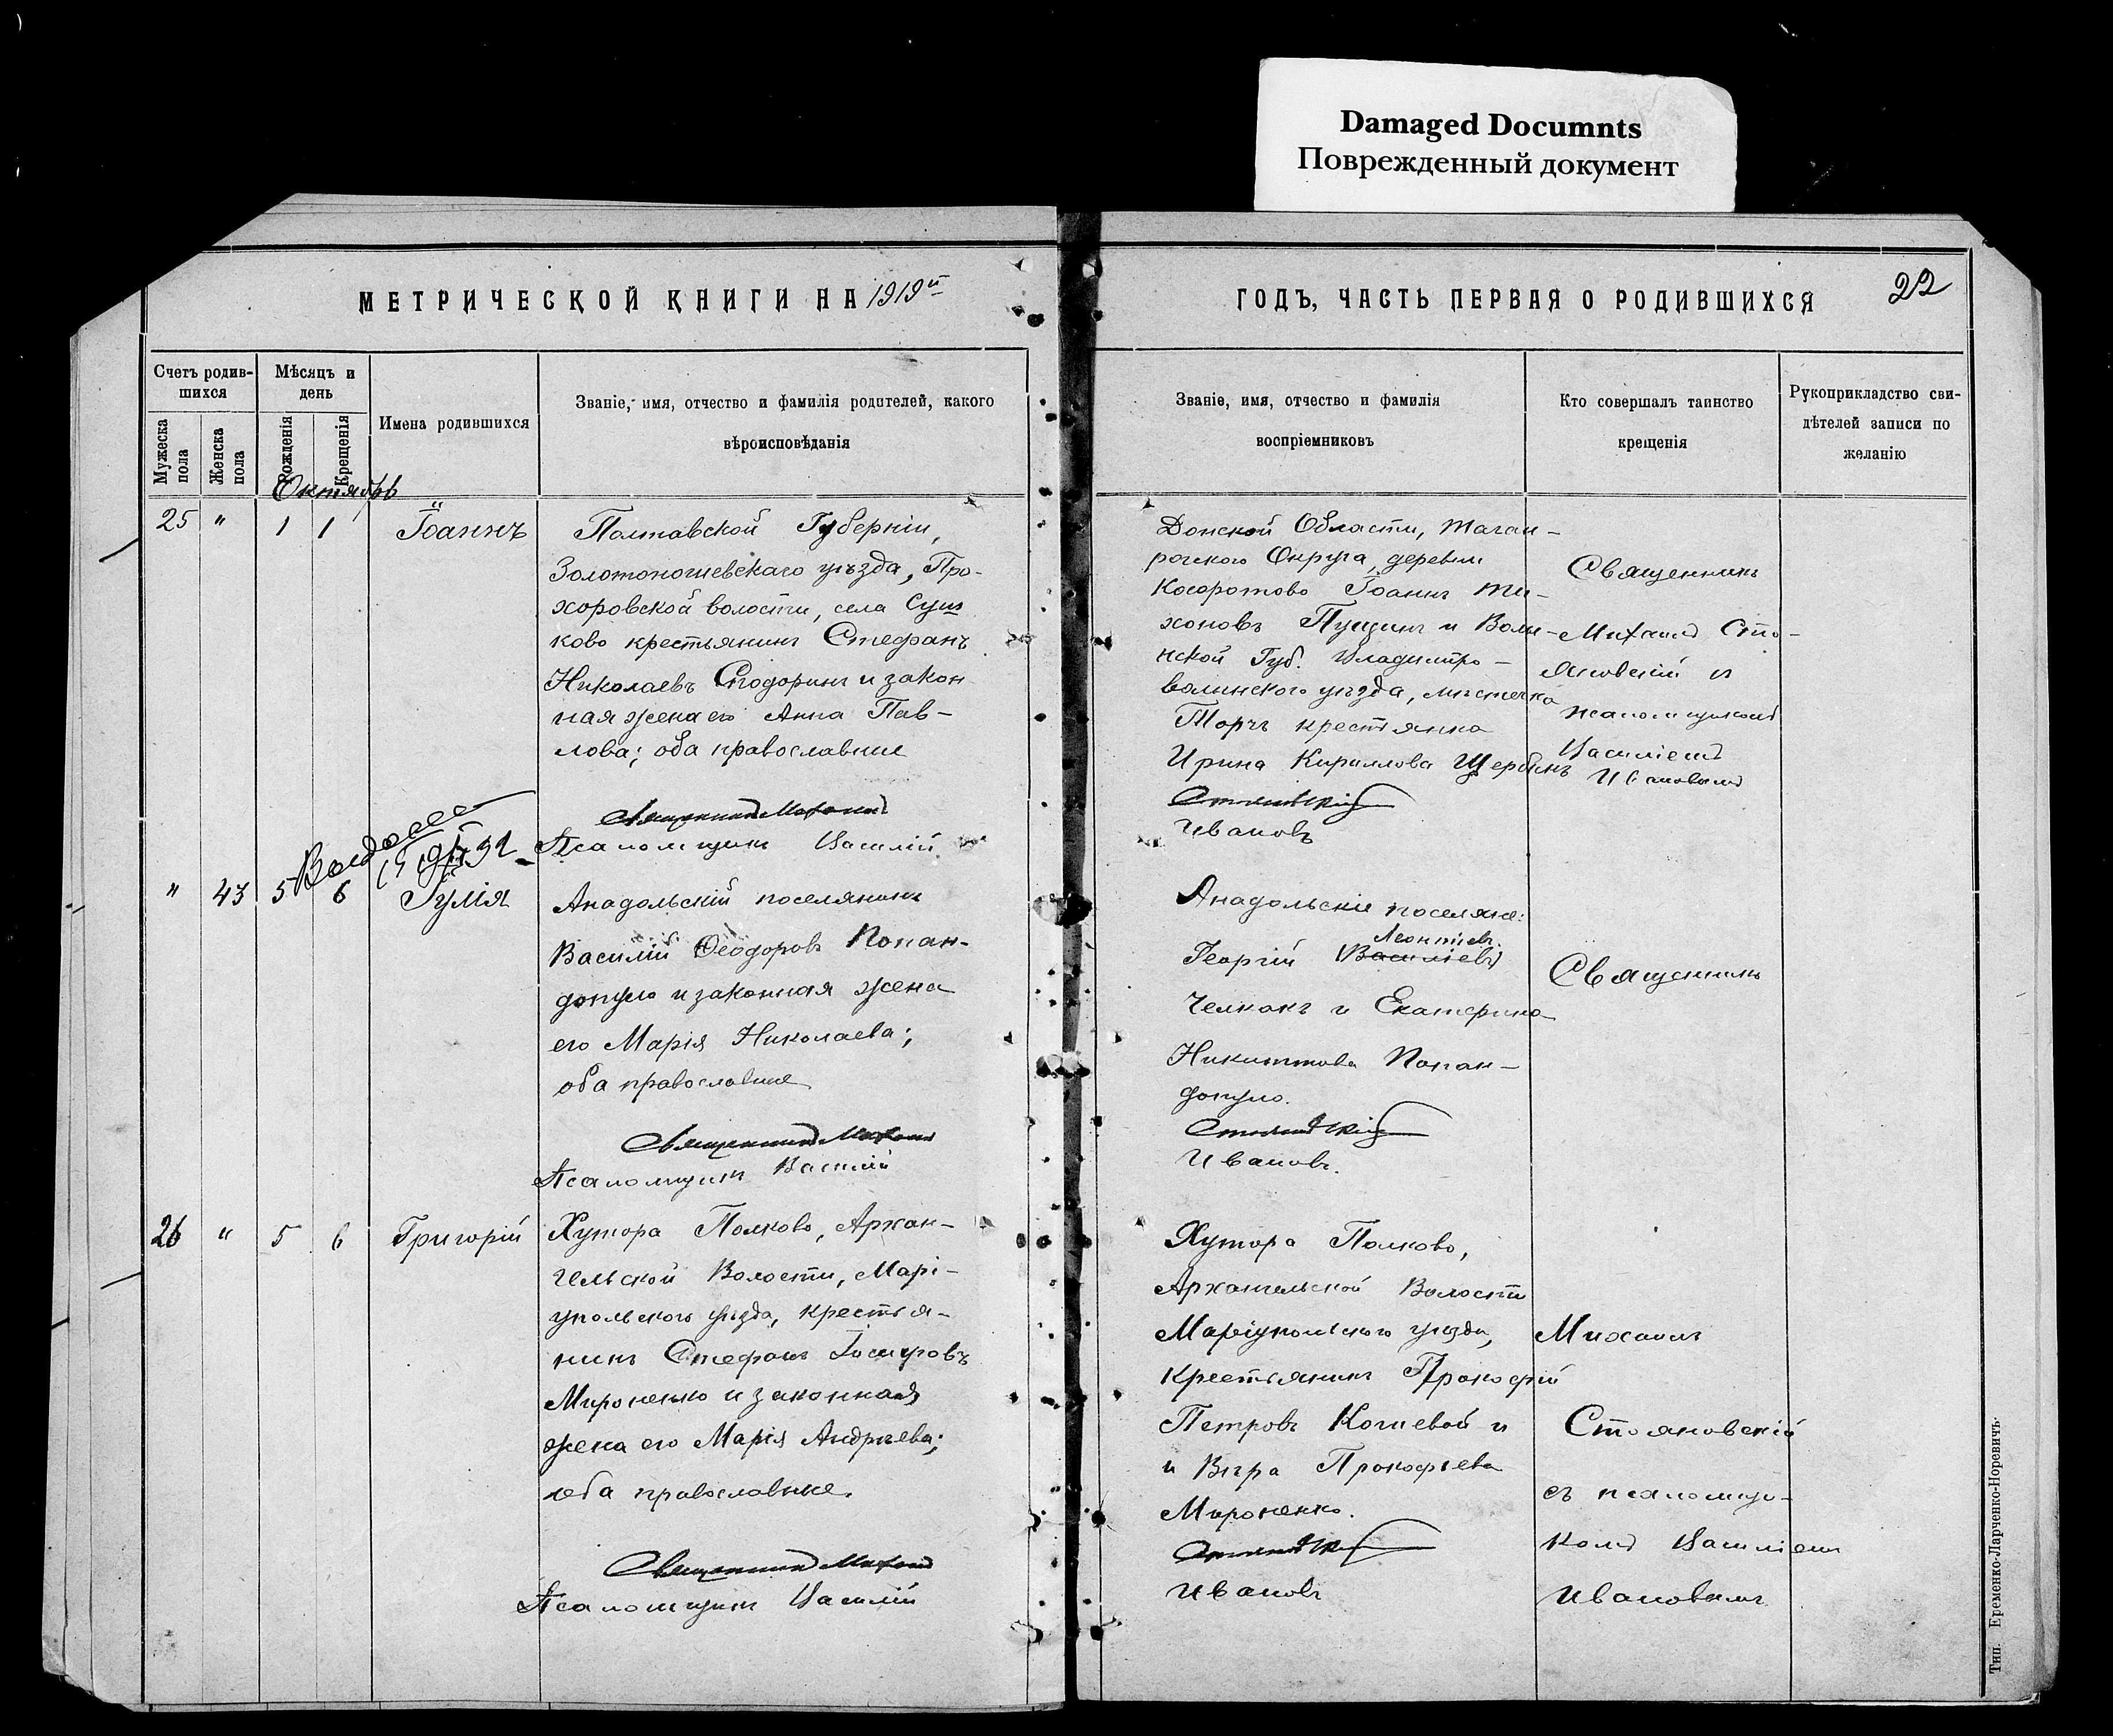 Damaged Documnts
Поврежденный документ
МЕТРИЧЕСКОЙ КНИГИ НА 1919й
ГОДЪ, ЧАСТЬ ПЕРВАЯ О РОДИВШИХСЯ
22
Счетъ родив-
шихся
Мужеска пола
Женска пола
Мѣсяцъ и
день
Рожденія
Крещенія
Имена родившихся
Званіе, имя, отчество и фамилія родителей, какого
вѣроисповѣданія
Званіе, имя, отчество и фамилія
воспріемниковъ
Кто совершалъ таинство
крещенія
Рукоприкладство сви-
дѣтелей записи по
желанію
Октябрь
25 " 1 1 Іоаннъ
Полтавской Губерніи,
Золотоношевскаго уѣзда, Про-
хоровской волости, села Суш
ково крестьянинъ Стефанъ
Николаевъ и закон
ная жена его Анна Пав-
лова; оба православные
Священникъ Михаилъ
Псаломщикъ Василій
Донской Области, Таган-
рогского Округа, деревни
Косоротово Іоаннъ Ти-
хоновъ Пущинъ и Волы-
нской Губ. Владимиро-
волынского уѣзда, мѣстечка
Торчъ крестьянка
Ирина Кириллова Щербинъ
Стояновскій
Ивановъ
Священникъ
Михаилъ Сто-
яновскій и
псаломщикомъ
Василіемъ
Ивановымъ
" 43 5 6 Іулія
Анадольскій поселянинъ
Василій Ѳеодоровъ Попан-
допуло и законная жена
его Марія Николаева;
оба православные
Священникъ Михаилъ
Псаломщикъ Василій
Анадольскіе поселяне:
Леонтіевъ
Георгій Василіевъ
Челпакъ и Екатерина
Никитова Попан-
допуло.
Стояновскій
Ивановъ.
Священникъ
26 " 5 6 Григорій
Хутора Полково, Архан-
гельской Волости, Марі-
упольского уѣзда, крестья-
нинъ Стефанъ
Мироненко и законная
жена его Марія Андреева;
оба православные.
Священникъ Михаилъ
Псаломщикъ Василій
Хутора Полково,
Архангельской Волости
Маріупольского уѣзда,
крестьянинъ Прокофій
Петровъ Кошевой и
и Вѣра Прокофьева
Мироненко.
Стояновскій
Ивановъ
Михаилъ
Стояновскій
съ псаломщи-
комъ Василіемъ
Ивановымъ
Тип. Еременко-Ларченко-Норевичъ.